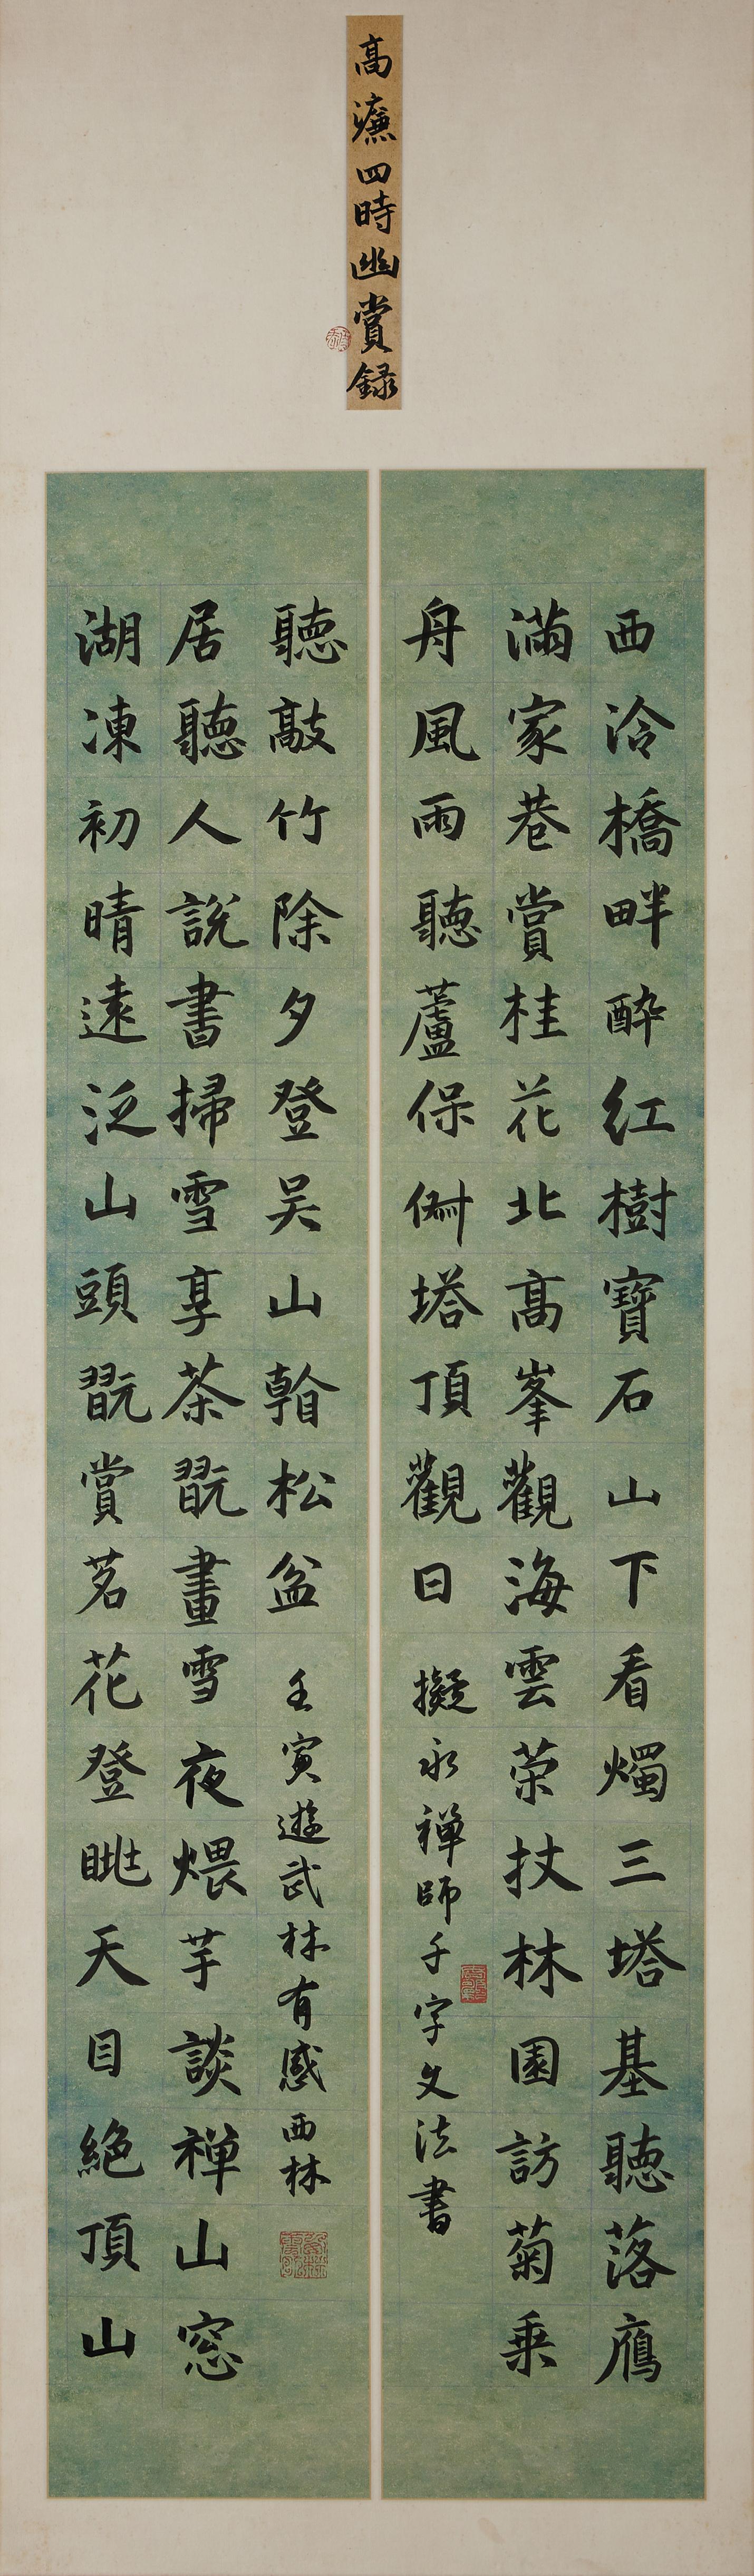 高濂四時幽賞録
西泠橋畔酔紅樹寶石山下看燭三塔基聽落鴈
滿家巷賞桂花北高峯觀海雲荣扙林園訪菊乗
舟風雨聽蘆保俶塔頂觀日
擬永禅師千字文法書
湖凍初晴遠泛山頭翫賞茗花登眺天目絶頂山
居聽人說書掃雪享茶翫畫雪夜煨芋談禅山窓
聽敲竹除夕登吴山松盆
壬寅遊武林有感西林